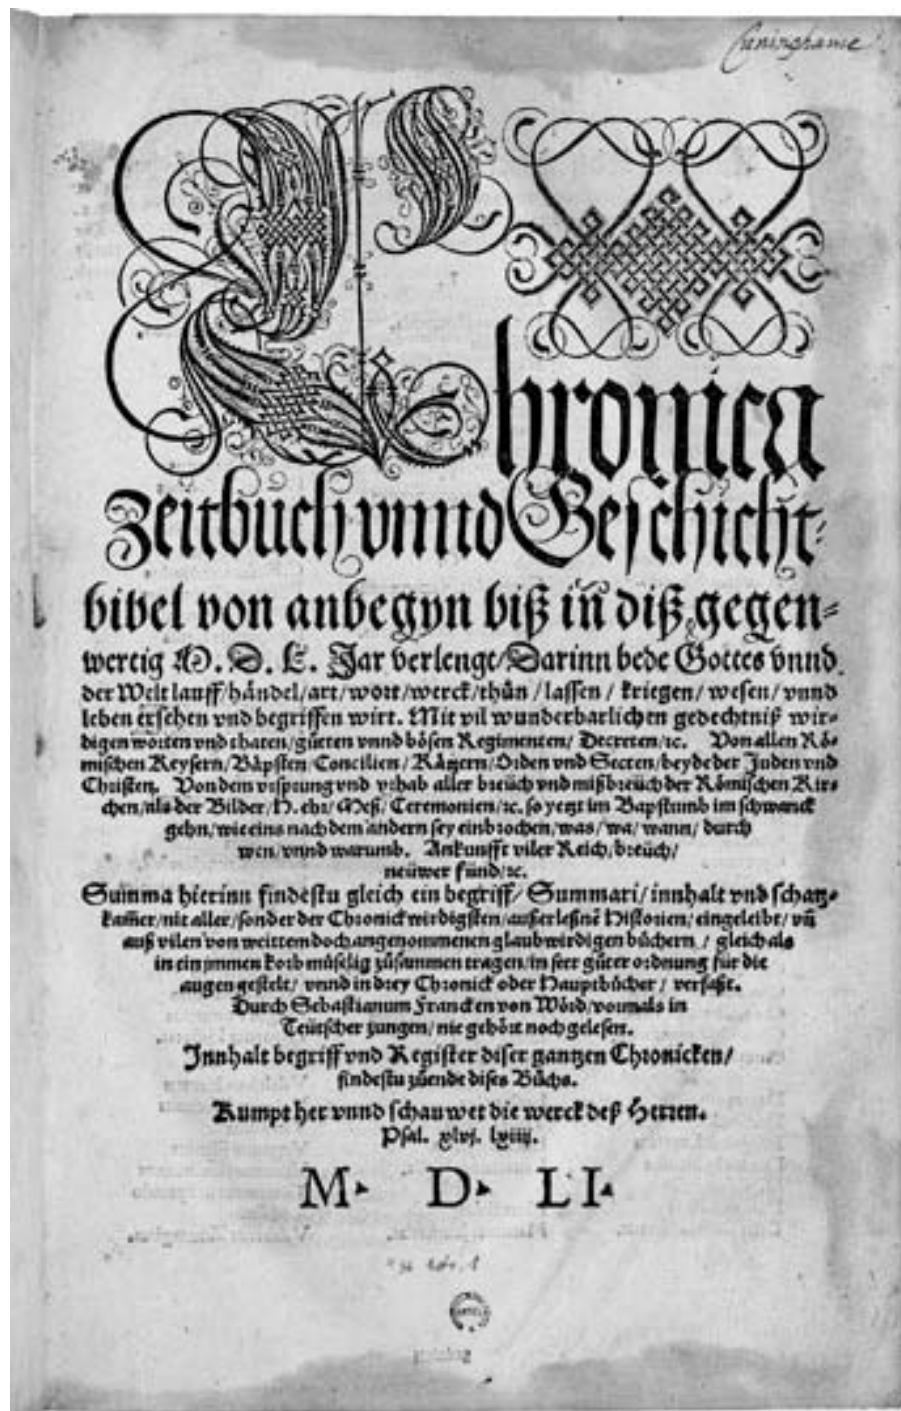 Cuninghame
Chronica
Zeitbuch vnnd Geschicht-
bibel von anbegyn biß in diß gegen-
wertig M. D. L. Jar verlengt/Darinn bede Gottes vnnd
der Welt lauff/händel/art/wort/werck/thůn/lassen/kriegen/wesen/vnnd
leben ersehen vnd begriffen wirt. Mit vil wunderbarlichen gedechtniß wir-
digen worten vnd thaten/gůten vnnd bösen Regimenten/Decreten/ꝛc. Von allen Rö-
mischen Keysern/Bäpsten/Concilien/Kätzern/Orden vnd Secten/beyde der Juden vnd
Christen. Von dem vrsprung vnd vrhab aller breüch vnd mißbreüch der Römischen Kir-
chen/als der Bilder/H. ehr/Meß/Ceremonien/ꝛc. so yetzt im Bapstumb im schwanck
gehn/wie eins nach dem andern sey einbrochen/was/wa/wann/durch
wen/vnnd warumb. Ankunfft viler Reich/breüch/
neüwer fünd/ꝛc.
Summa hierinn findestu gleich ein begriff/Summari/innhalt vnd schatz-
kam̃er/nit aller/sonder der Chronickwirdigsten/außerleßnẽ Historien/eingeleibt/vñ
auß vilen von weittem doch angenommenen glaubwirdigen bůchern/gleich als
in ein ymmen korb můselig zůsammen tragen/in seer gůter ordnung für die
augen gestelt/vnnd in drey Chronick oder Hauptbücher/verfaßt.
Durch Sebastianum Francken von Wörd/vormals in
Teütscher zungen/nie gehört noch gelesen.
Innhalt begriff vnd Register diser gantzen Chronicken/
findestu zůende dises Bůchs.
Kumpt her vnnd schauwet die werck deß Herren.
Psal. xlvj. lxiiij.
M. D. LI.